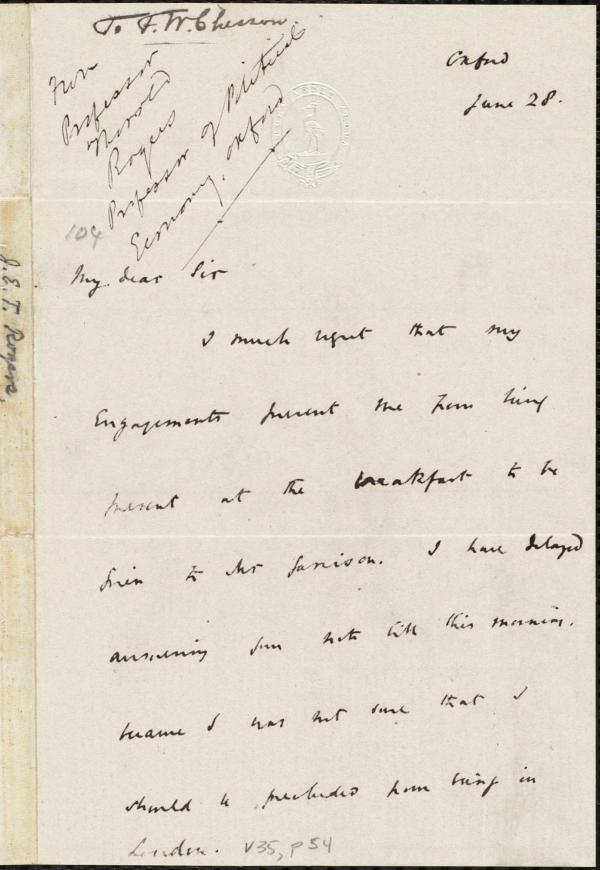 To F. W. Chesson.
From
Professor
Thorold
Rogers
Professor of Political
Economy, Oxford
Oxford
June 28.
104
My dear Sir
I much regret that my
Engagements prevent me from being
present at the breakfast to be
given to Mr Garrison. I have delayed
answering your note till this morning,
because I was not sure that I
should be precluded from being in
London. V35, p54
J. E. T. Rogers.